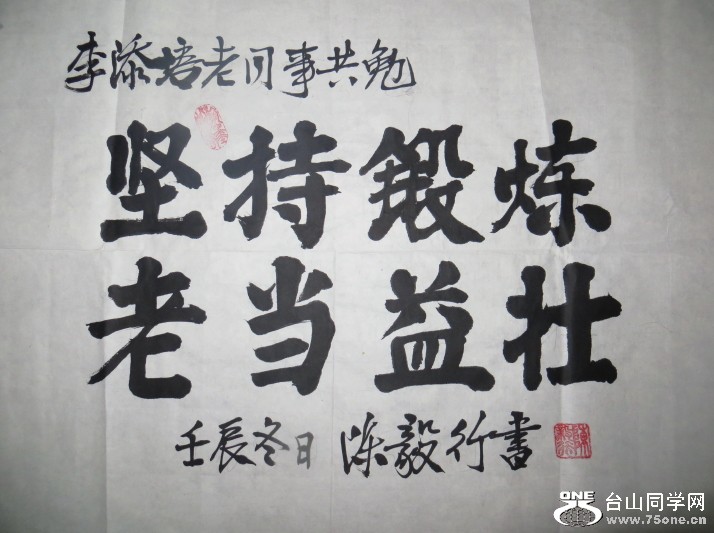 李添培老同事共勉
坚持锻炼
老当益壮
壬辰冬日 陈毅行书
ONE 台山同学网
www.75one.cn